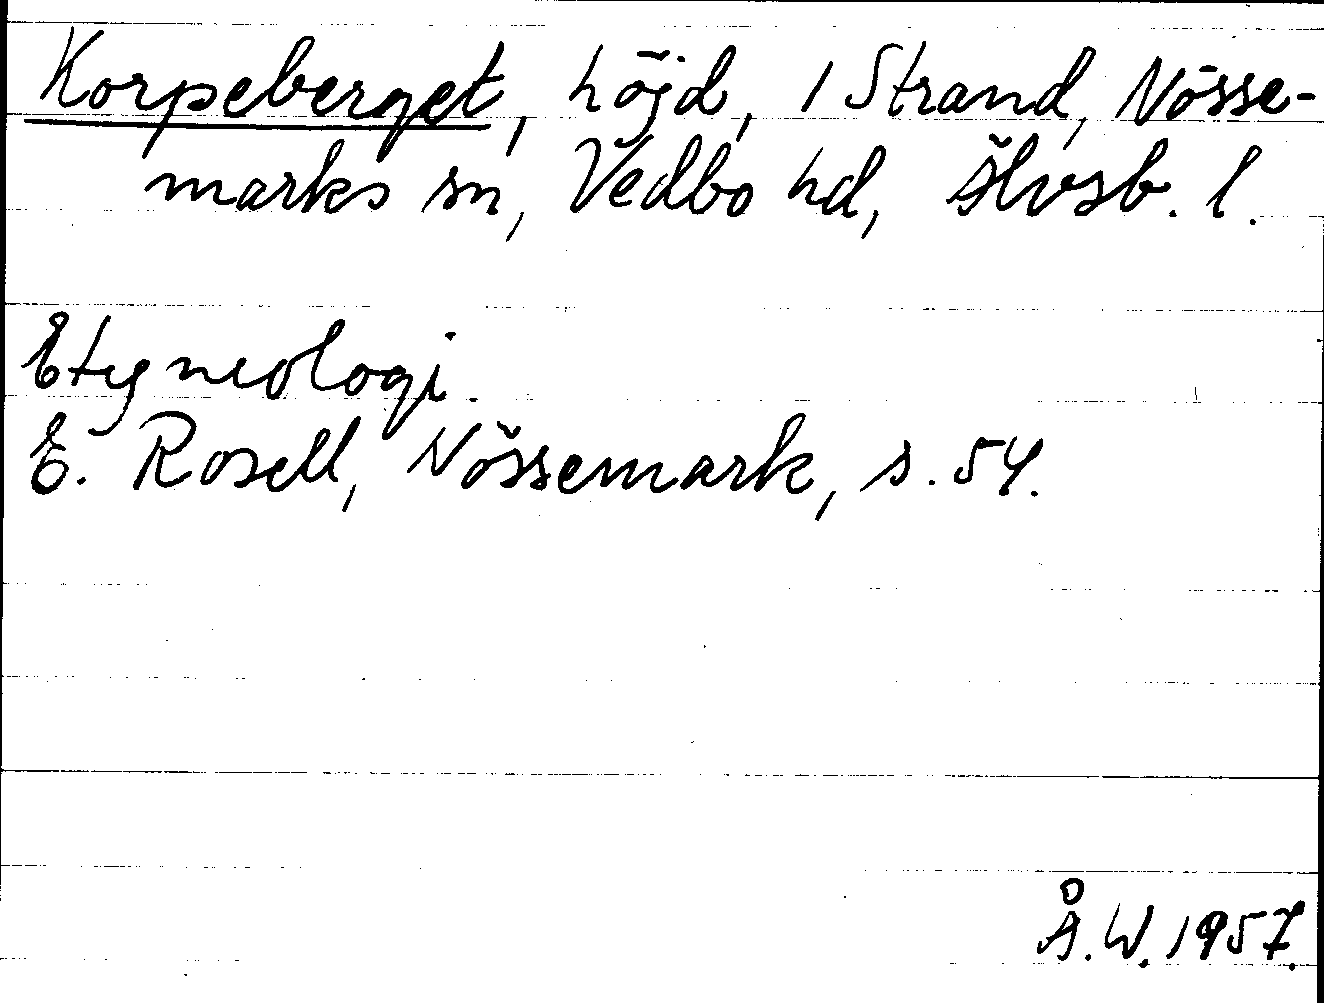 Korpeberget, höjd, 1 Strand, Nösse-
marks sn, Vedbo hd, Älvsb. l.
Etymologi.
E. Rosell, Nössemark, s. 54.
Å.W. 1957.